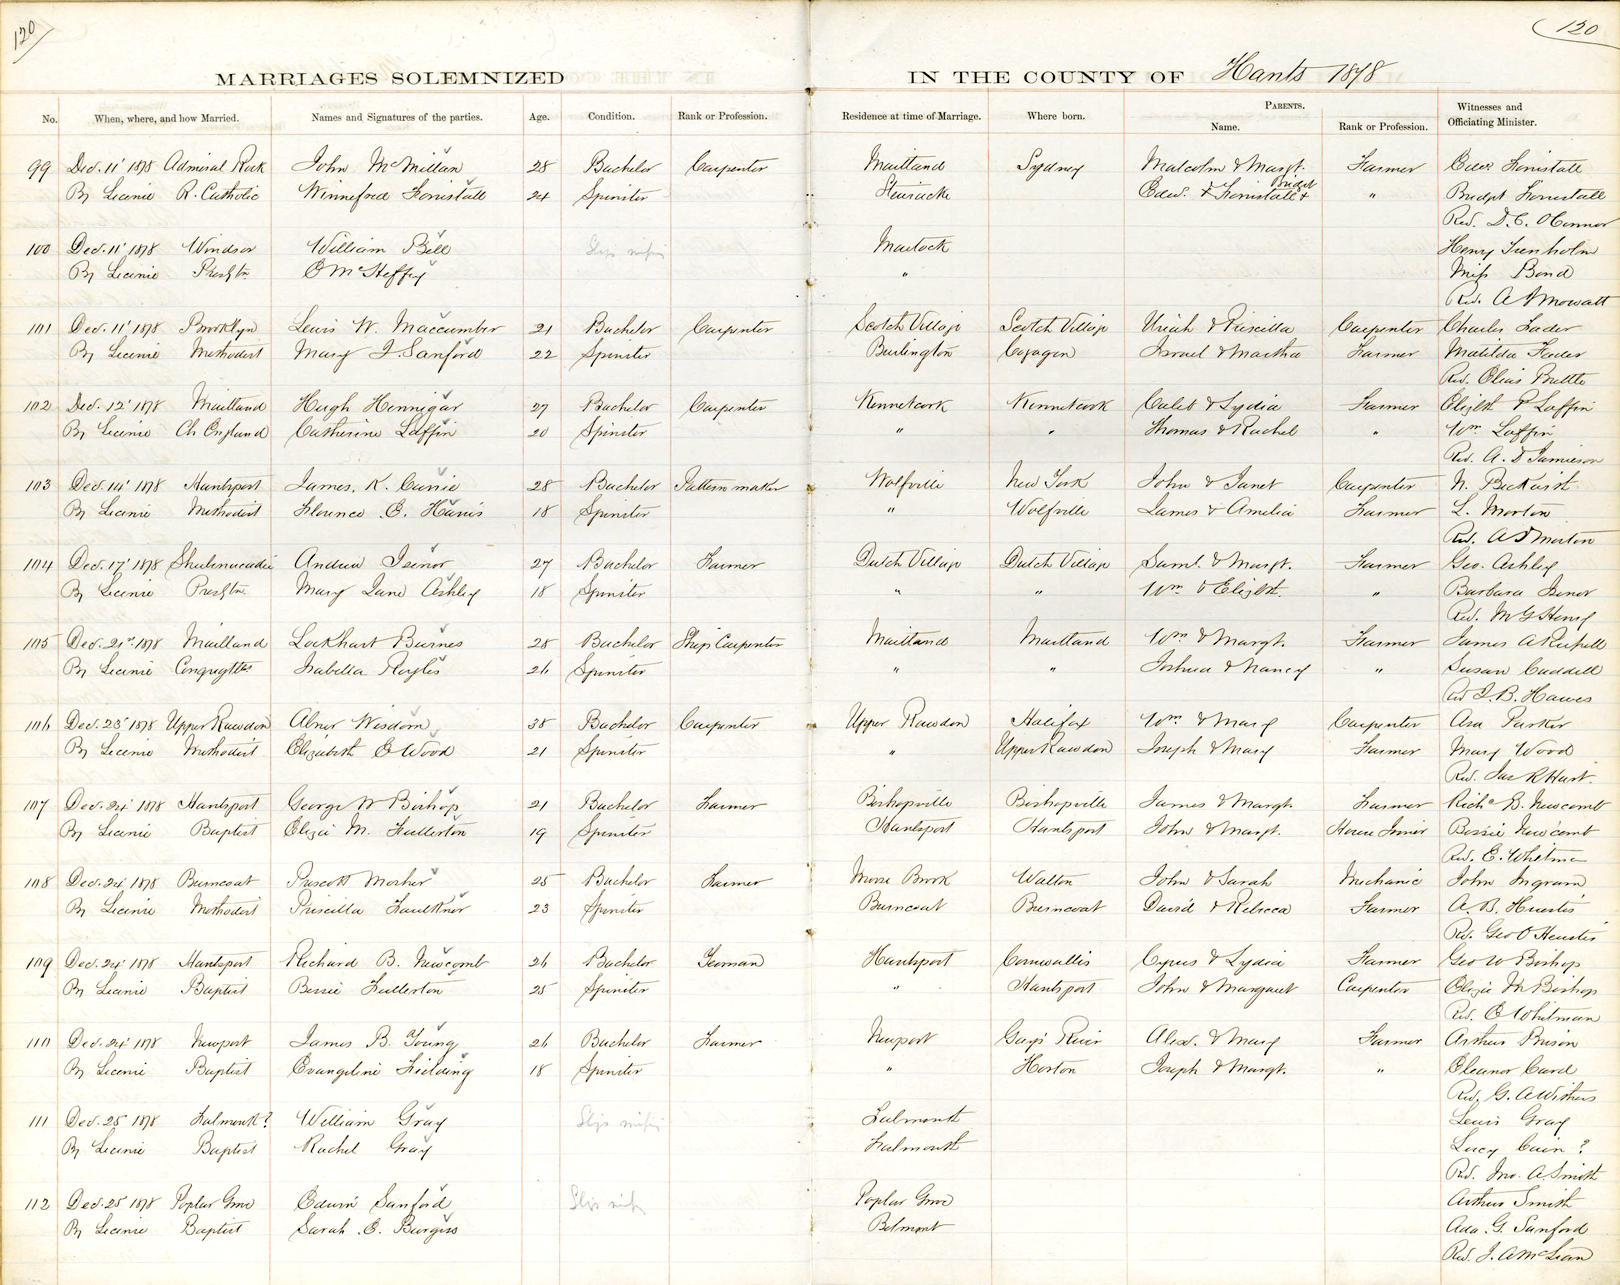 120
120
MARRIAGES SOLEMNIZED IN THE COUNTY OF Hants 1878
No. When, where, and how Married. Names and Signatures of the parties. Age. Condition. Rank or Profession. Residence at time of Marriage. Where born. PARENTS. Name. Rank or Profession. Witnesses and Officiating Minister.
99 Dec. 11' 1878 Admiral Rock John McMillan 28 Bachelor Carpenter Maitland Sydney Malcolm & Margt. Farmer Edwd Fornistall
By Licence R. Catholic Winnefred Fornistall 24 Spinster Edw. & Fornistall & Bridgt " Bridgt Fornistall
Rev. D. C. O'Connor
100 Dec. 11' 1878 Windsor William Bell Slip missing Martock Henry Trenholm
By Licence Presbtn. E McHeffey " Miss Bond
Rev. A J Mowatt
101 Dec. 11' 1878 Brooklyn Lewis W. Maccumber 21 Bachelor Carpenter Scotch Village Scotch Village Uriah & Priscilla Carpenter Charles Fader
By Licence Methodist Mary J. Sanford 22 Spinster Burlington Israel & Martha Farmer Matilda Fader
Rev. Elias Brettle
102 Dec. 12' 1878 Maitland Hugh Hennigar 27 Bachelor Carpenter Kennetcook Kennetcook Caleb & Lydia Farmer Elizbth P Laffin
By Licence Ch England Catherine Laffin 20 Spinster " " Thomas & Rachel " Wm Laffin
Rev. A. D Jamieson
103 Dec. 14' 1878 Hantsport James. K. Currie 28 Bachelor Pattern maker Wolfville New York John & Janet Carpenter N. Beckwith
By Licence Methodist Florence E. Harris 18 Spinster " Wolfville James & Amelia Farmer L. Morton
Rev. A D Morton
104 Dec. 17' 1878 Shubenacadie Andrew Isenor 27 Bachelor Farmer Dutch Village Dutch Village Saml. & Margt. Farmer Geo. Ashley
By Licence Presbtn. Mary Jane Ashley 18 Spinster " " Wm & Elizbth. " Barbara Isenor
Rev. M G Henry
105 Dec. 21st 1878 Maitland Lockhart Burnes 28 Bachelor Ship Carpenter Maitland Maitland Wm & Margt. Farmer James A
By Licence Isabella Royles 26 Spinster " " Joshua & Nancy " Susan Caddell
Rev J. B. Hawes
106 Dec. 23' 1878 Upper Rawdon Abner Wisdom 38 Bachelor Carpenter Upper Rawdon Halifax Wm & Mary Carpenter Asa Parker
By Licence Methodist Elizabeth E Wood 21 Spinster " Upper Rawdon Joseph & Mary Farmer Mary Wood
Rev. Jas R Hart.
107 Dec. 24' 1878 Hantsport George W Bishop 21 Bachelor Farmer Bishopville Bishopville James & Margt. Farmer Richd B. Newcomb
By Licence Baptist Elizie M. Fullerton 19 Spinster Hantsport Hantsport John & Margt. House Joiner Bessie Newcomb
Rev. E. Whitman
108 Dec. 24' 1878 Burncoat Prescott Mosher 25 Bachelor Farmer Moose Brook Walton John & Sarah Mechanic John Ingram
By Licence Methodist Priscilla Faulkner 23 Spinster Burncoat Burncoat David & Rebecca Farmer A. B. Huestis
Rev. Geo O Huestis
109 Dec. 24' 1878 Hantsport Richard B. Newcomb 26 Bachelor Yeoman Hantsport Cornwallis Cyrus & Lydia Farmer Geo W Bishop
By Licence Baptist Bessie Fullerton 25 Spinster " Hantsport John & Margaret Carpenter Elizie M Bishop
Rev. E Whitman
110 Dec. 24' 1878 Newport James B. Young 26 Bachelor Farmer Newport Gays River Alex. & Mary Farmer Arthur Brison
By Licence Baptist Evangeline Fielding 18 Spinster " Horton Joseph & Margt. " Eleanor Card
Rev. G. A Withers
111 Dec. 25' 1878 Falmouth? William Gray Slip missing Falmouth Lewis Gray
By Licence Baptist Rachel Gray Falmouth Lucy Cain ?
Rev. Jno. A Smith
112 Dec. 25 1878 Poplar Grove Edwin Sanford Slip missing Poplar Grove Arthur Smith
By Licence Baptist Sarah E. Burgess Belmont Ada. G. Sanford
Rev. J. A McLean